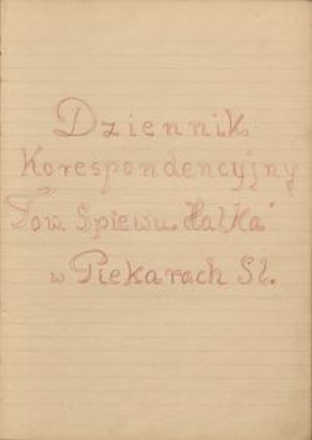 Dziennik
Korespondencyjny
Tow. Śpiewu „Halka”
w Piekarach Śl.